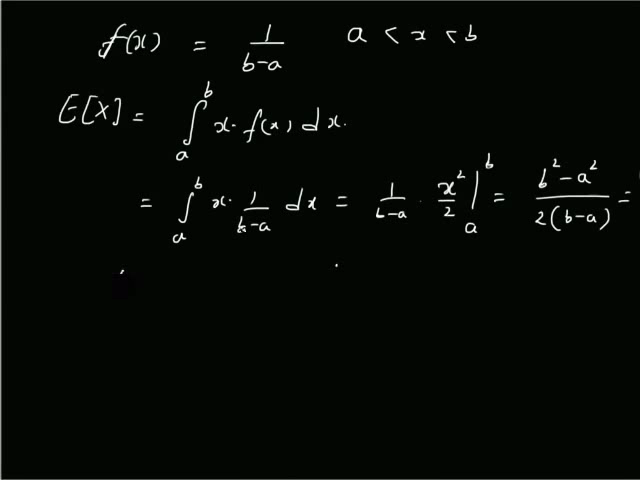 f(x) = 1/(b-a) a < x < b
E[X] = ∫_a^b x· f(x) dx.
= ∫_a^b x· 1/(b-a) dx = 1/(b-a) · x²/2 |_a^b = (b²-a²)/(2(b-a)) =